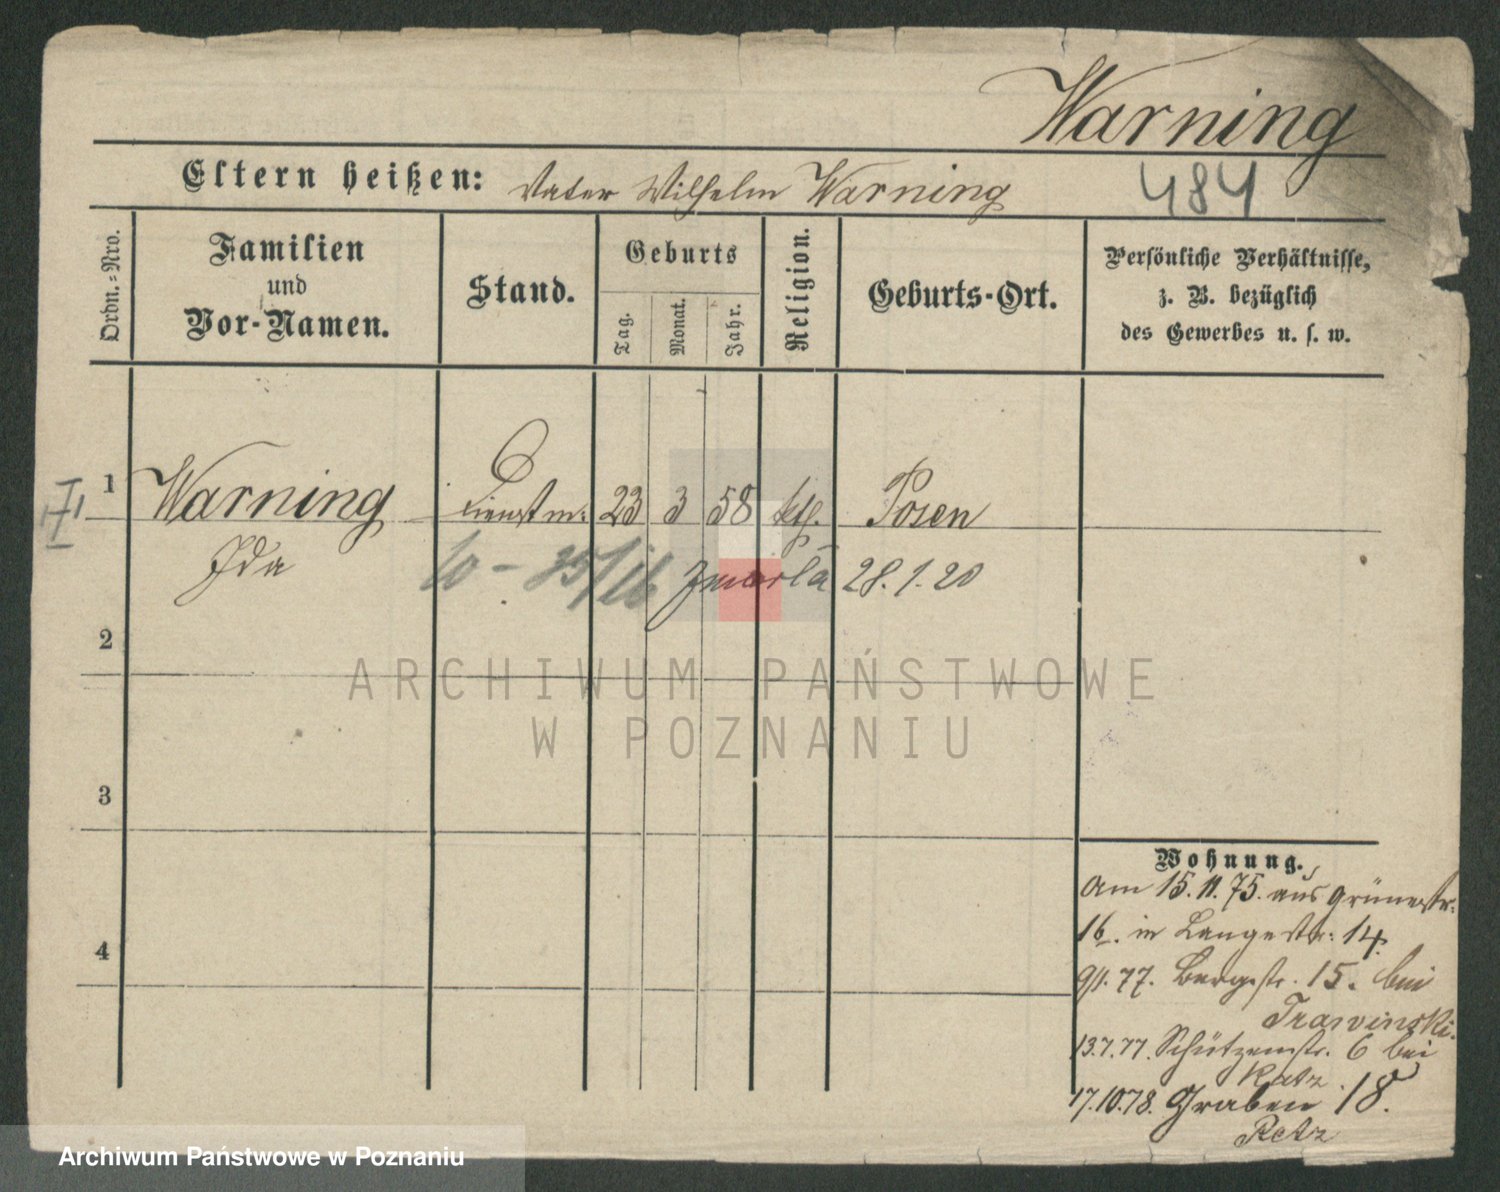 Warning
Eltern heißen: Vater Wilhelm Warning
484
Ordn.-Nro.
Familien
und
Vor-Namen.
Stand.
Geburts
Tag.
Monat.
Jahr.
Religion.
Geburts-Ort.
Persönliche Verhältnisse,
z. B. bezüglich
des Gewerbes u. s. w.
1
Warning
Dienstm:
23
3
58
kth.
Posen
Ida
zmarła 28.1.20
2
3
4
Wohnung.
Am 15.11.75. aus Grünestr:
16. in Langestr: 14.
9/1.77. Bergstr. 15. bei
Trawinski.
13.7.77. Schützenstr. 6 bei
Katz
17.10.78. Graben 18.
Retz
ARCHIWUM PAŃSTWOWE
W POZNANIU
Archiwum Państwowe w Poznaniu